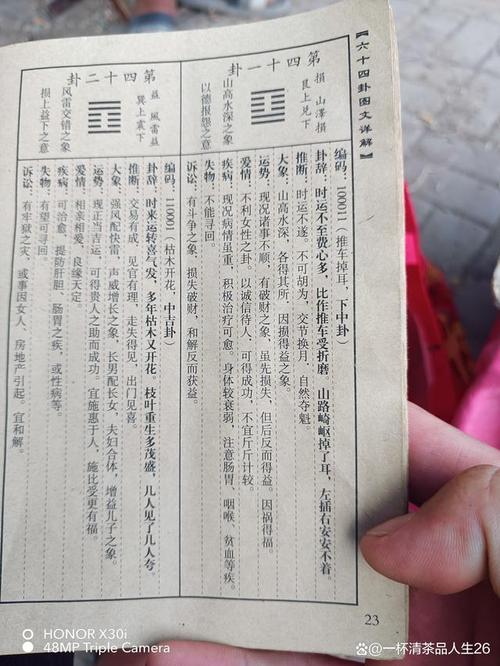 【六十四卦图文详解】
第四十一卦
损 山泽损
艮上兑下
山高水深之象
以德报怨之意
编码：100011（推车掉耳，下中卦）
卦辞：时运不至费心多，比作推车受折磨。山路崎岖掉了耳，左插右安安不着
推断：时运不遂。不可胡为，交节换月，自然夺魁。
大象：山高水深，各得其所，因损得益之象。
运势：现况诸事不顺，有破财之象，虽先损失，但后反而得益。因祸得福。
爱情：不利女性之卦。以诚信待人，可得成功，不宜斤斤计较。
疾病：现况病情虽重，积极治疗可愈。身体较衰弱，注意肠胃、咽喉、贫血等疾。
失物：不能寻回。
诉讼：有斗争之象，损失破财，和解反而获益。
第四十二卦
益 风雷益
巽上震下
风雷交错之象
损上益下之意
编码：110001（枯木开花，中吉卦）
卦辞：时来运转喜气发，多年枯木又开花，枝叶重生多茂盛，几人见了几人夸。
推断：交易有成，见官有理，走失得见，出门见喜。
大象：强风配快雷，声威增长之象，长男配长女，夫妇合体，增益儿子之象。
运势：现正当吉运，可得贵人之助而成功。宜施惠于人，施比受更有福。
爱情：相亲相爱，良缘天定。
疾病：可治愈，提防肝胆、肠胃之疾，或性病等。
失物：有望可寻回。
诉讼：有牢狱之灾，或事因女人、房地产引起。宜和解。
23
HONOR X30i
48MP Triple Camera
@一杯清茶品人生26